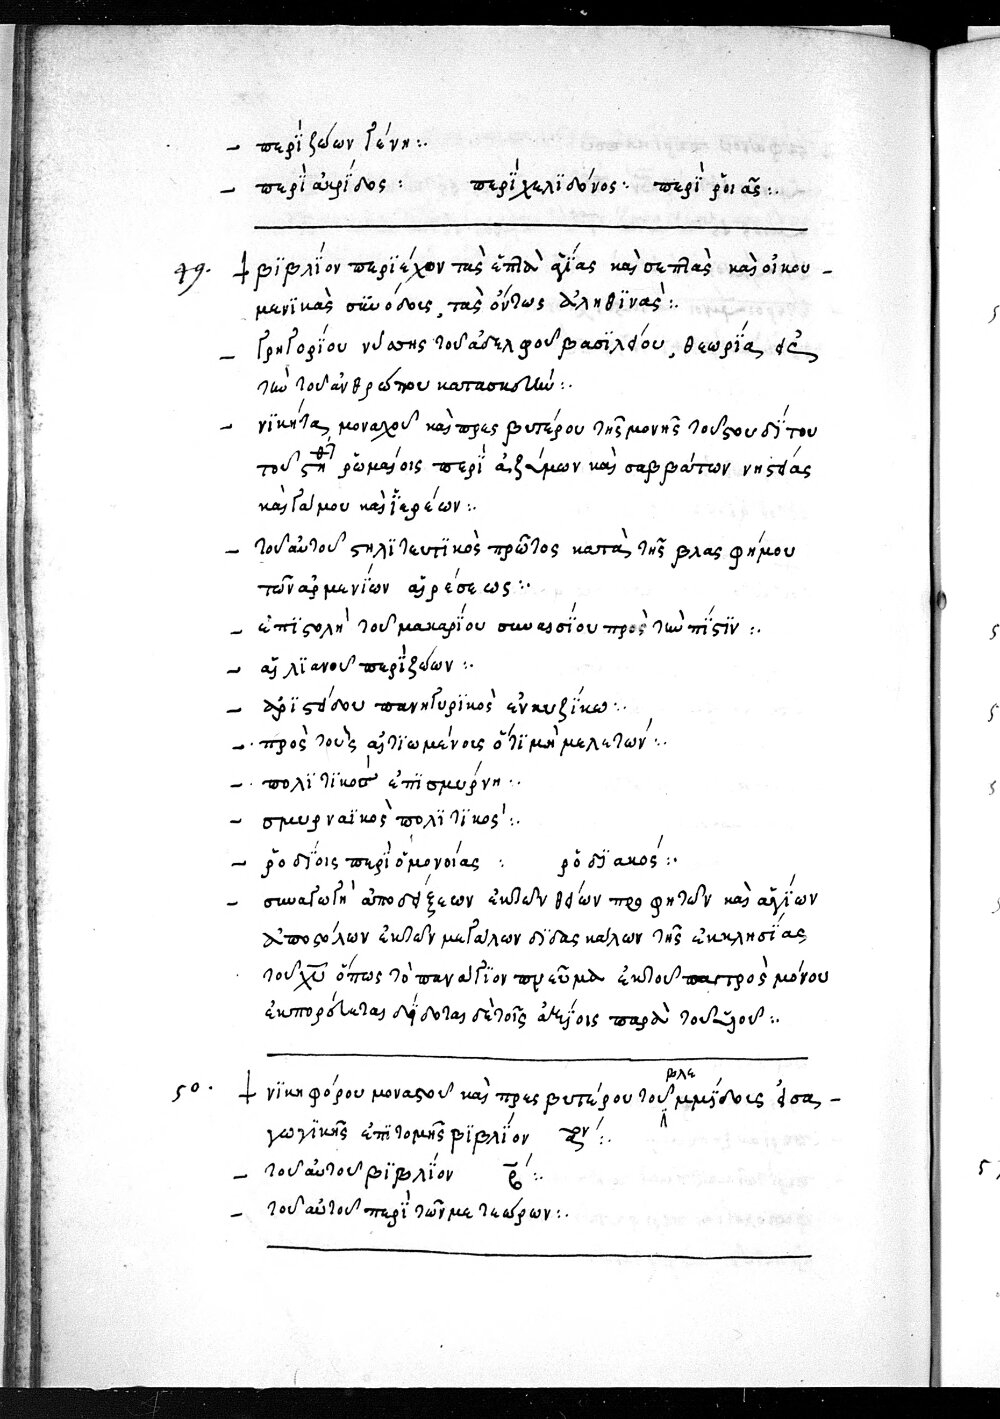 – περῒ ζώων γένη :.
– περῒ ἀκρίδος : περῒ χελϊδόνος : περῒ ῥοιᾶς :.
49. ‡ βϊβλΐον περϊέχον τὰς ἑπτὰ ἁγΐας καὶ σεπτὰς καὶ οἰκου –
μενϊκὰς συνόδοις, τὰς ὄντως ἀληθϊνάς :.
– γρηγορίου νύσης τοῦ ἀδελφοῦ βασϊλείου, θεωρΐα εἰς
τὴν τοῦ ἀνθρώπου κατασκευήν :.
– νϊκήτα μοναχοῦ καὶ πρεσβυτέρου τῆς μονῆς τοῦ στουδΐτου
τοῦ στηθ ῥωμαίοις περῒ ἀζύμων καὶ σαββάτων νηστείας
καὶ γάμου καὶ ἱερέων :.
– τοῦ αὐτοῦ στηλϊτευτϊκὸς πρῶτος κατὰ τῆς βλασφήμου
τῶν ἀρμενΐων αἱρέσεως :.
– ἐπϊστολὴ τοῦ μακαρΐου συναισίου πρὸς τὴν πΐστϊν :.
– αἰλϊανοῦ περῒ ζώων :.
– ἀρϊστείδου πανηγυρϊκὸς ἐν κυζΐκω :.
– πρὸς τοὺς αἰτϊωμένοις ὅτϊ μὴ μελετών :.
– πολϊτϊκοσ ἐπϊ σμύρνη :.
– σμυρναϊκὸς πολϊτϊκός :.
– ῥοδΐοις περῒ ὁμονοίας : ῥοδϊακός :.
– συναγωγὴ ἀποδείξεων ἐκ τῶν θείων προφητῶν καὶ ἁγΐων
ἀποστόλων ἐκ τῶν μεγάλων δϊδασκάλων τῆς ἐκκλησΐας
τοῦ χῦ ὅπως τὸ πανάγϊον πνεῦμα ἐκ τοῦ πατρὸς μόνου
ἐκπορεύεται δΐδοται δὲ τοῖς ἀξΐοις παρὰ τοῦ υἱοῦ :.
50. ‡ νϊκηφόρου μοναχοῦ καὶ πρεσβυτέρου τοῦ βλεμμΐδοις εἰσα –
γωγϊκῆς ἐπϊτομῆς βϊβλΐον αον :.
– τοῦ αὐτοῦ βϊβλΐον βον :.
– τοῦ αὐτοῦ περῒ τῶν μετεώρων :.